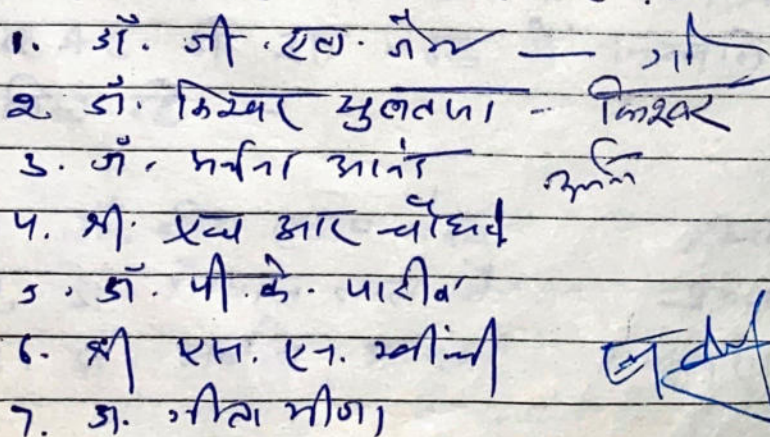 1. डॉ. जी. एल. जैन —
2. डॉ. किश्वर सुलताना - किश्वर
3. डॉ. अर्चना आनंद
4. श्री एच आर चौधरी
5. डॉ. पी. के. पारीक
6. श्री एस. एन.
7. डा. गीता मीणा